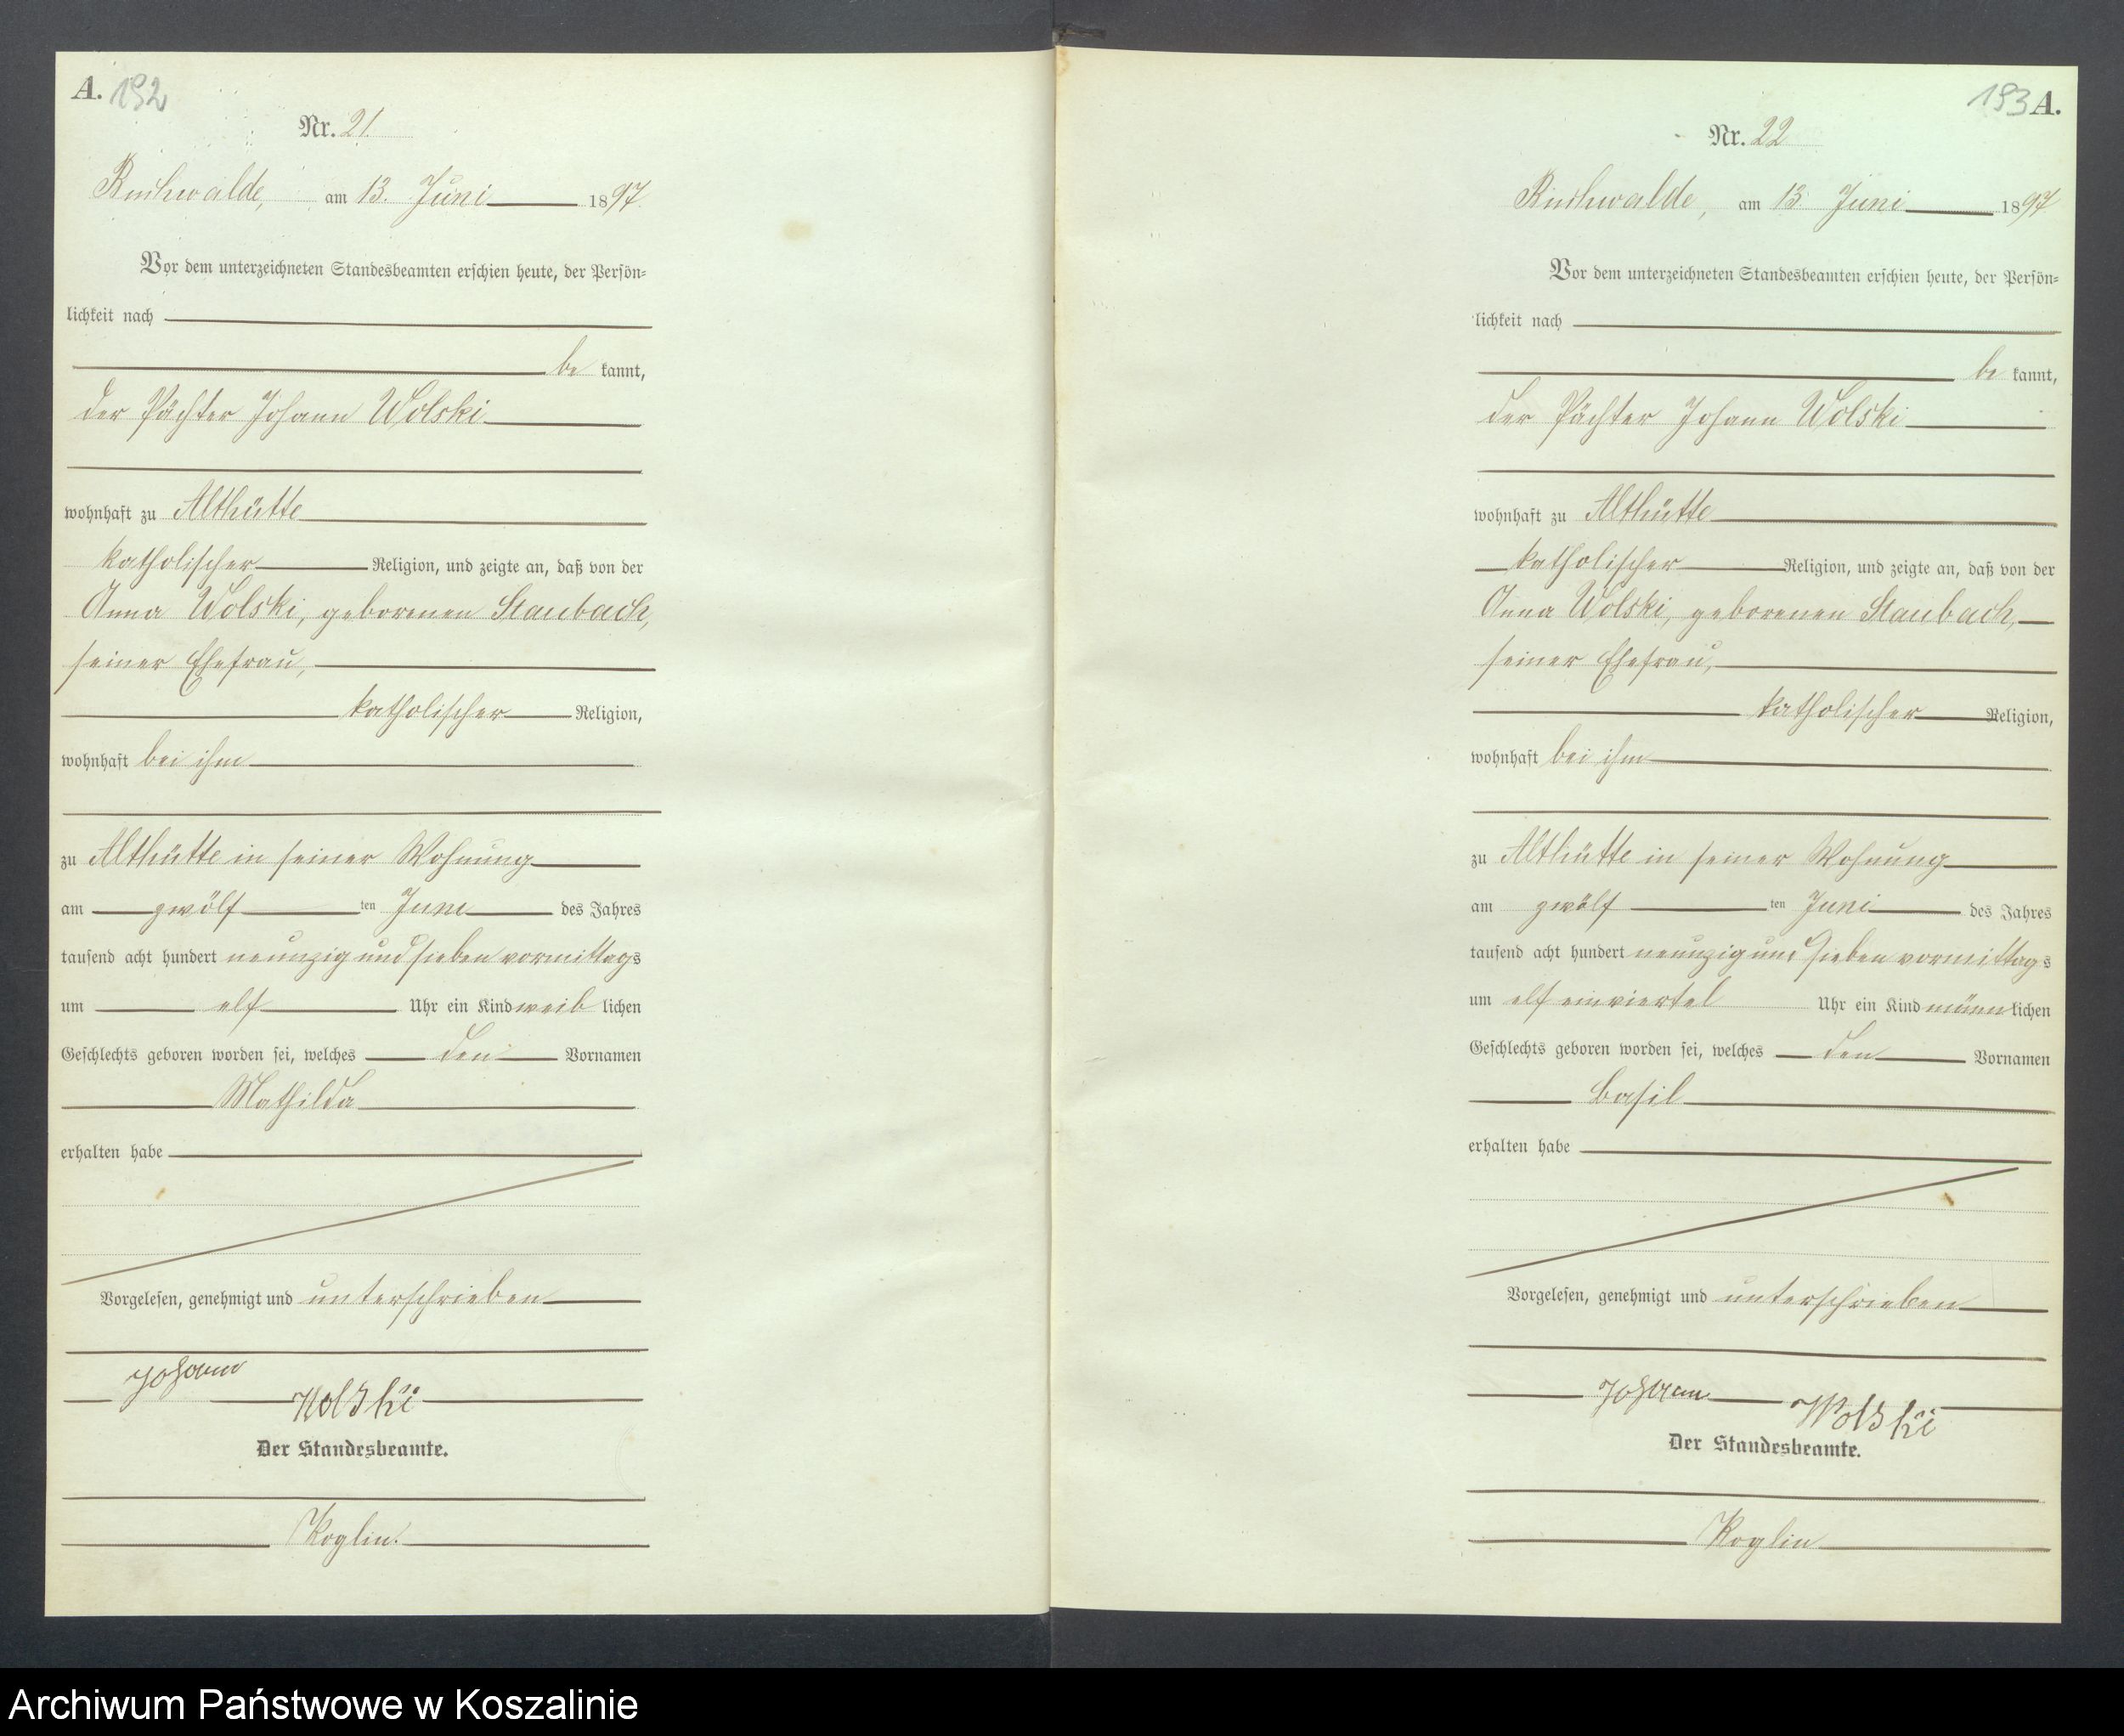 A. 192
Nr. 21
Buchwalde, am 13. Juni 1897
Vor dem unterzeichneten Standesbeamten erschien heute, der Persön=
lichkeit nach
be kannt,
der Pächter Johann Wolski
wohnhaft zu Althütte
katholischer Religion, und zeigte an, daß von der
Anna Wolski, geborenen Staubach,
seiner Ehefrau,
katholischer Religion,
wohnhaft bei ihm
zu Althütte in seiner Wohnung
am zwölf ten Juni des Jahres
tausend acht hundert neunzig und sieben vormittags
um elf Uhr ein Kind weib lichen
Geschlechts geboren worden sei, welches den Vornamen
Mathilda
erhalten habe
Vorgelesen, genehmigt und unterschrieben
Johann Wolski
Der Standesbeamte.
Koglin.
193 A.
Nr. 22
Buchwalde, am 13 Juni 1897
Vor dem unterzeichneten Standesbeamten erschien heute, der Persön=
lichkeit nach
be kannt,
der Pächter Johann Wolski
wohnhaft zu Althütte
katholischer Religion, und zeigte an, daß von der
Anna Wolski, geborenen Staubach,
seiner Ehefrau,
katholischer Religion,
wohnhaft bei ihm
zu Althütte in seiner Wohnung
am zwölf ten Juni des Jahres
tausend acht hundert neunzig und sieben vormittags
um elf einviertel Uhr ein Kind männ lichen
Geschlechts geboren worden sei, welches den Vornamen
Basil
erhalten habe
Vorgelesen, genehmigt und unterschrieben
Johann Wolski
Der Standesbeamte.
Koglin
Archiwum Państwowe w Koszalinie